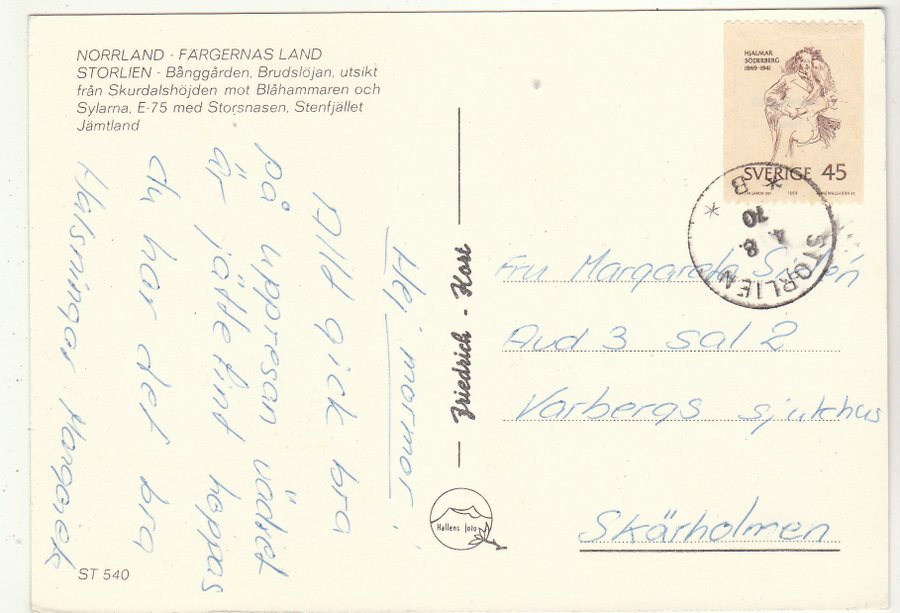 NORRLAND - FÄRGERNAS LAND
STORLIEN - Bånggården, Brudslöjan, utsikt
från Skurdalshöjden mot Blåhammaren och
Sylarna, E-75 med Storsnasen, Stenfjället
Jämtland
Hej mormor!
Allt gick bra
på uppresan vädret
är jättefint hoppas
du har det bra
Hälsningar
ST 540
Friedrich - Kort
Hallens foto
HJALMAR
SÖDERBERG
1869-1941
SVERIGE 45
1969
STORLIEN
4. 8.
70
* B *
Fru Margareta
Avd 3 sal 2
Varbergs sjukhus
Skärholmen